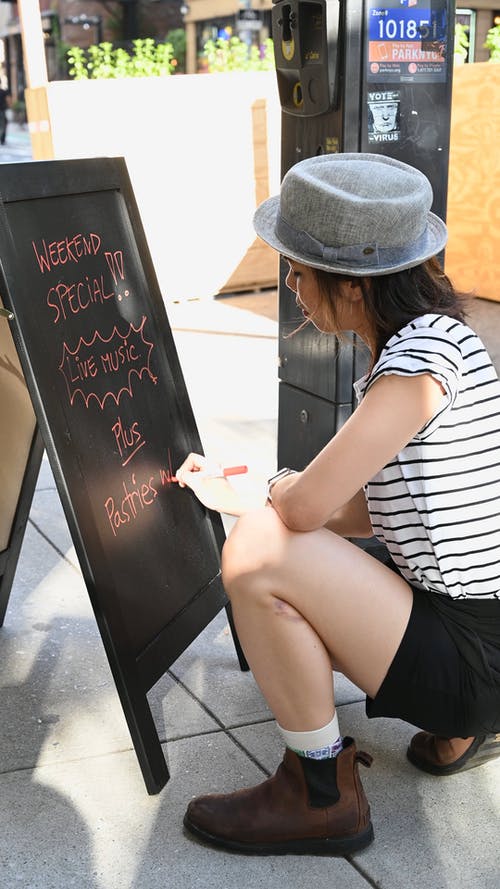 WEEKEND
SPECIAL!!
LIVE MUSIC
Plus
Pastries
Zone
101851
PARKNYC
VOTE
VIRUS